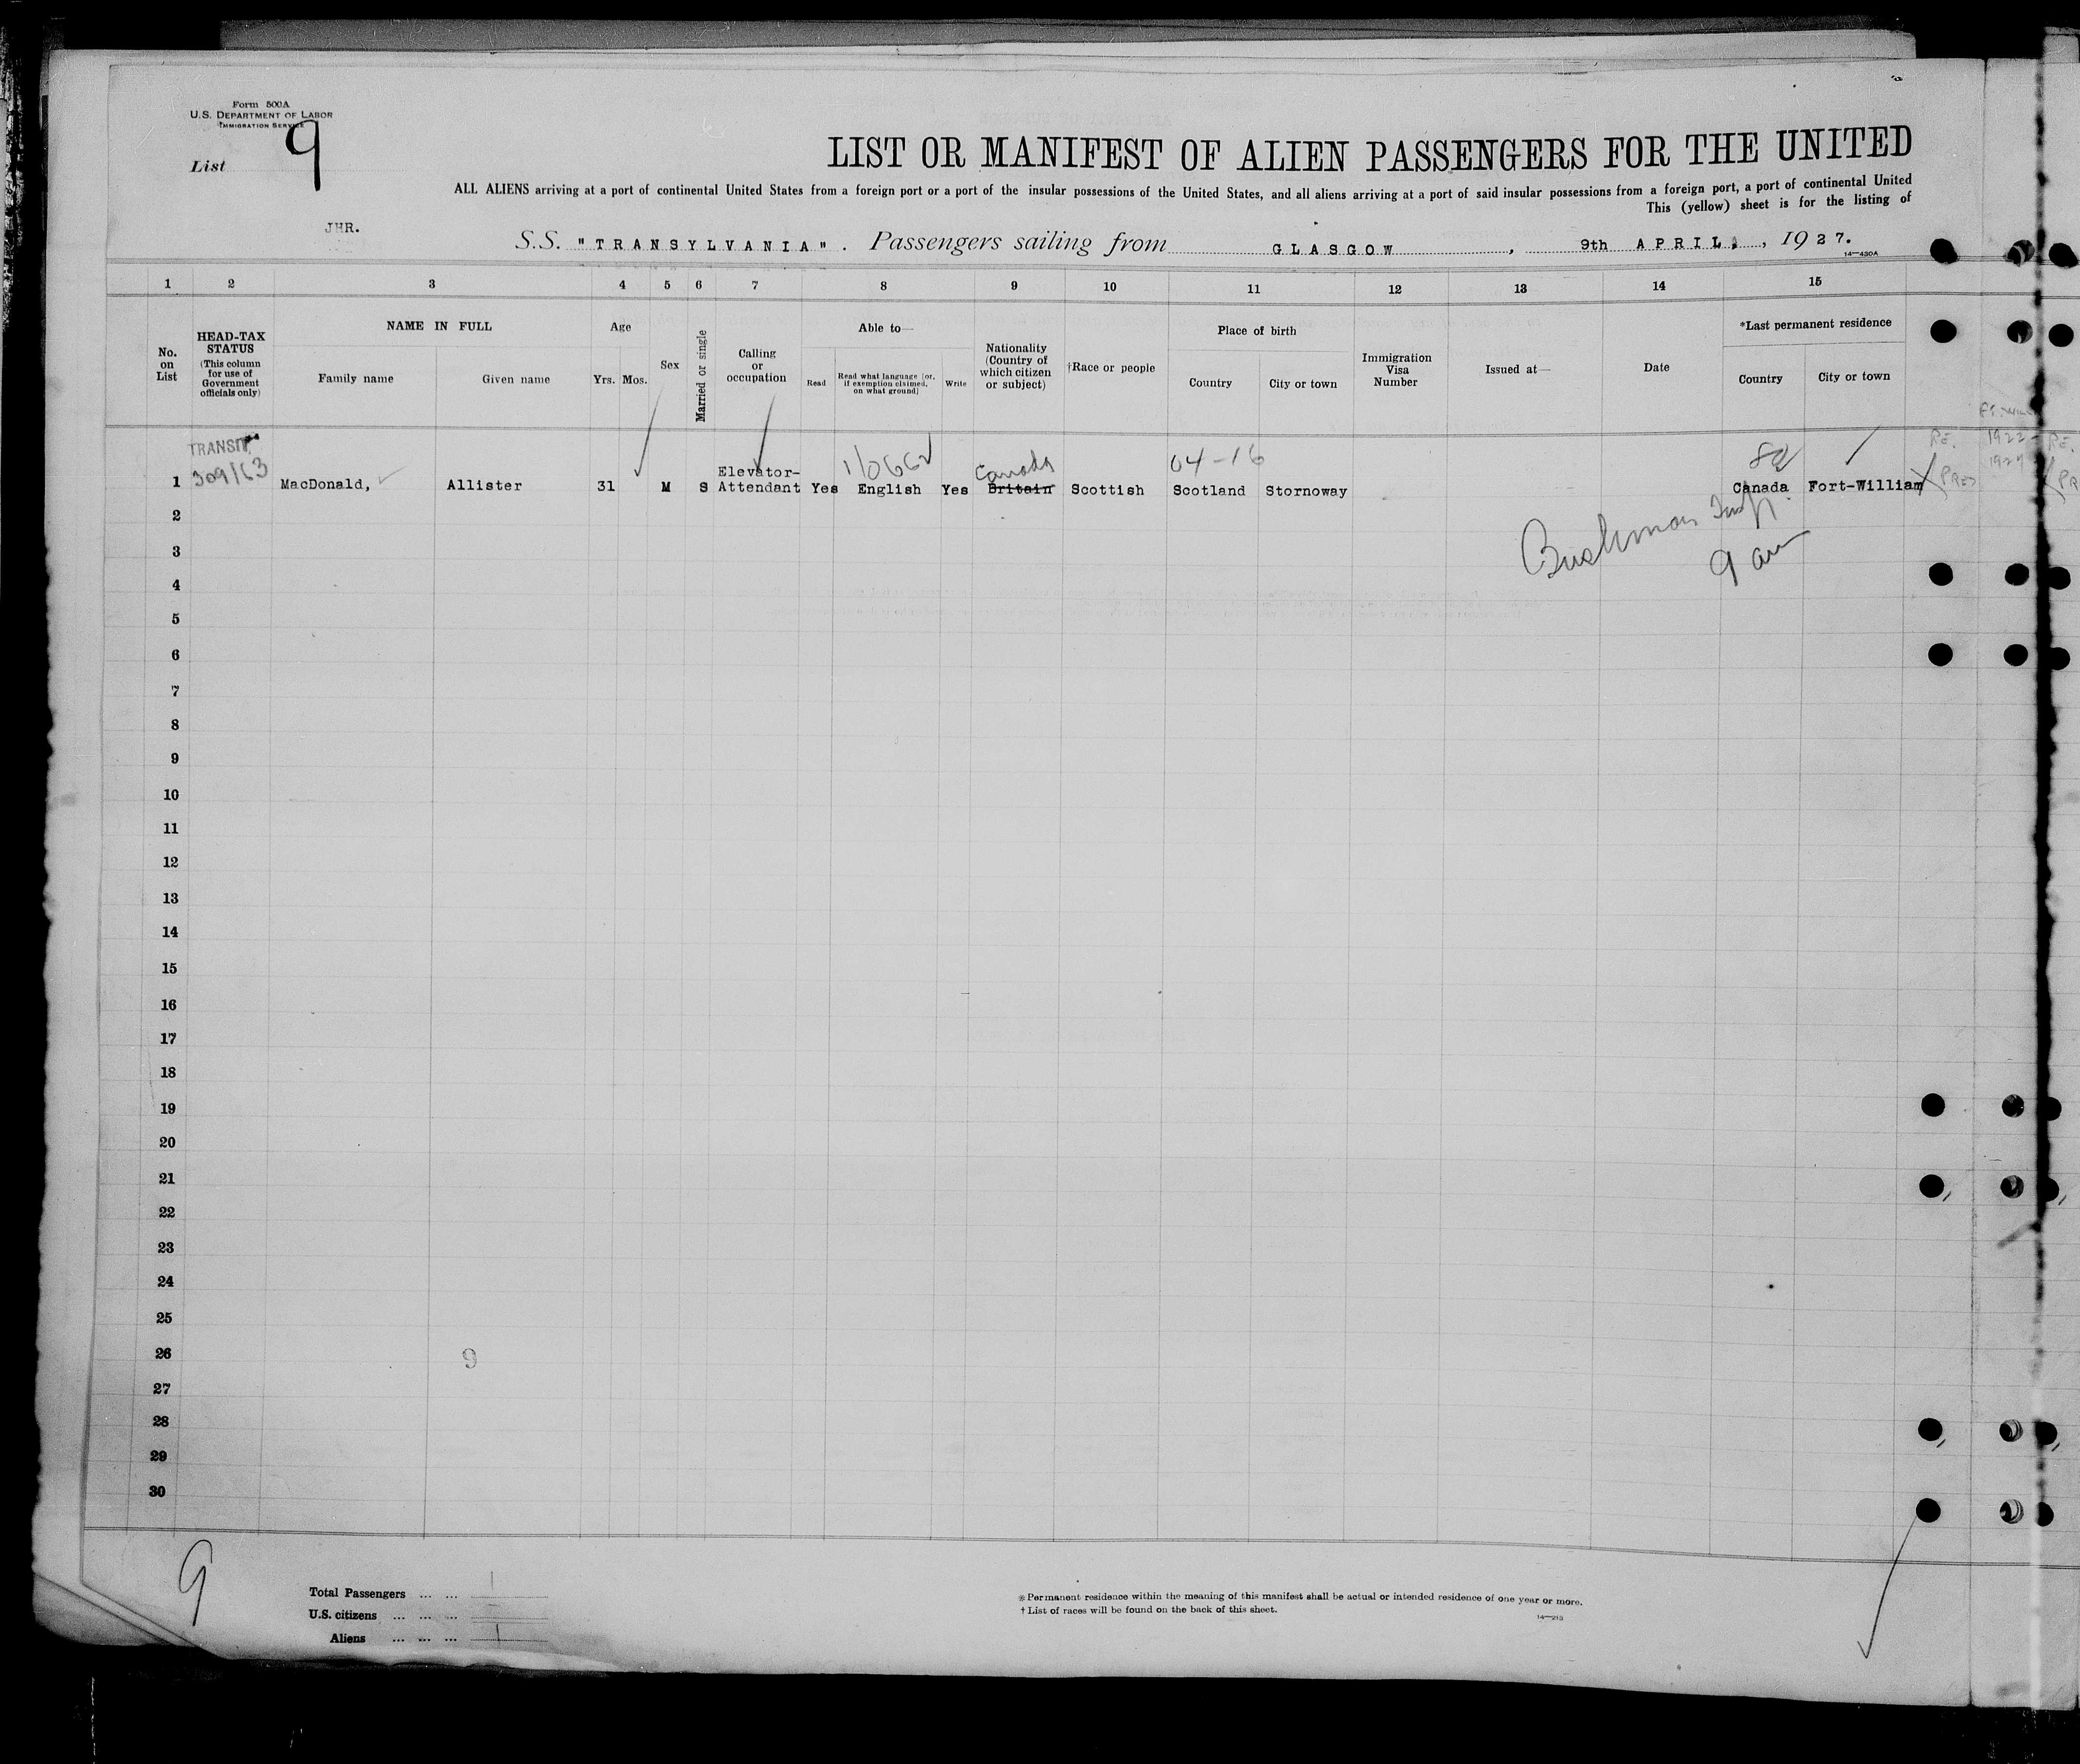 Form 500A
U.S. DEPARTMENT OF LABOR
IMMIGRATION SERVICE
List 9
LIST OR MANIFEST OF ALIEN PASSENGERS FOR THE UNITED
ALL ALIENS arriving at a port of continental United States from a foreign port or a port of the insular possessions of the United States, and all aliens arriving at a port of said insular possessions from a foreign port, a port of continental United
This (yellow) sheet is for the listing of
JHR.
S.S. "TRANSYLVANIA". Passengers sailing from GLASGOW, 9th APRIL, 1927.
14—430A
1 2 3 4 5 6 7 8 9 10 11 12 13 14 15
No. on List
HEAD-TAX STATUS
(This column for use of Government officials only)
NAME IN FULL
Family name
Given name
Age
Yrs. Mos.
Sex
Married or single
Calling or occupation
Able to—
Read
Read what language (or, if exemption claimed, on what ground)
Write
Nationality (Country of which citizen or subject)
†Race or people
Place of birth
Country
City or town
Immigration Visa Number
Issued at—
Date
*Last permanent residence
Country
City or town
TRANSIT
309/63
1/0662
Canada
04-16
1922-
RE.
1 MacDonald, Allister 31 M S Elevator-Attendant Yes English Yes Britain Scottish Scotland Stornoway Canada Fort-William
PRES
Bushman Insp.
9 am
2
3
4
5
6
7
8
9
10
11
12
13
14
15
16
17
18
19
20
21
22
23
24
25
26
9
27
28
29
30
9
Total Passengers ... ... 1
U.S. citizens ... ... ...
Aliens ... ... ... 1
* Permanent residence within the meaning of this manifest shall be actual or intended residence of one year or more.
† List of races will be found on the back of this sheet.
14—213